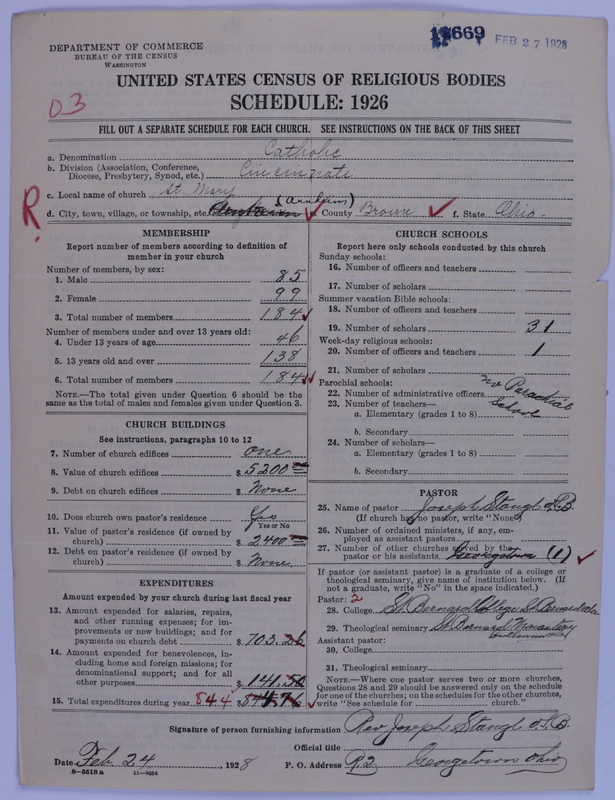 17669 FEB 27 1928
DEPARTMENT OF COMMERCE
BUREAU OF THE CENSUS
WASHINGTON
UNITED STATES CENSUS OF RELIGIOUS BODIES
SCHEDULE: 1926
03
FILL OUT A SEPARATE SCHEDULE FOR EACH CHURCH. SEE INSTRUCTIONS ON THE BACK OF THIS SHEET
a. Denomination Catholic
b. Division (Association, Conference,
Diocese, Presbytery, Synod, etc.) Cincinnati
c. Local name of church St. Mary
R. d. City, town, village, or township, etc. (Arnheim) e. County Brown f. State Ohio
MEMBERSHIP
Report number of members according to definition of
member in your church
Number of members, by sex:
1. Male 85
2. Female 99
3. Total number of members 184
Number of members under and over 13 years old:
4. Under 13 years of age 46
5. 13 years old and over 138
6. Total number of members 184
NOTE.—The total given under Question 6 should be
the same as the total of males and females given under Question 3.
CHURCH BUILDINGS
See instructions, paragraphs 10 to 12
7. Number of church edifices one
8. Value of church edifices $ 5200
9. Debt on church edifices $ None
10. Does church own pastor's residence Yes
Yes or No
11. Value of pastor's residence (if owned by
church) $ 2400
12. Debt on pastor's residence (if owned by
church) $ None
EXPENDITURES
Amount expended by your church during last fiscal year
13. Amount expended for salaries, repairs,
and other running expenses; for im-
provements or new buildings; and for
payments on church debt $ 703.26
14. Amount expended for benevolences, in-
cluding home and foreign missions; for
denominational support; and for all
other purposes $ 141.50
15. Total expenditures during year 844 $
CHURCH SCHOOLS
Report here only schools conducted by this church
Sunday schools:
16. Number of officers and teachers
17. Number of scholars
Summer vacation Bible schools:
18. Number of officers and teachers
19. Number of scholars 31
Week-day religious schools:
20. Number of officers and teachers 1
21. Number of scholars
Parochial schools: No Parochial
22. Number of administrative officers School
23. Number of teachers—
a. Elementary (grades 1 to 8)
b. Secondary
24. Number of scholars—
a. Elementary (grades 1 to 8)
b. Secondary
PASTOR
25. Name of pastor Joseph Stangl O.S.B.
(If church has no pastor, write "None")
26. Number of ordained ministers, if any, em-
ployed as assistant pastors
27. Number of other churches served by the
pastor or his assistants Georgetown (1)
If pastor (or assistant pastor) is a graduate of a college or
theological seminary, give name of institution below. (If
not a graduate, write "No" in the space indicated.)
Pastor: 2
28. College St Bernard College St Bernard Ala
29. Theological seminary St Bernard Monastery
Assistant pastor:
30. College
31. Theological seminary
NOTE.—Where one pastor serves two or more churches,
Questions 28 and 29 should be answered only on the schedule
for one of the churches; on the schedules for the other churches,
write "See schedule for church."
Signature of person furnishing information Rev Joseph Stangl O.S.B.
Official title
Date Feb. 24, 1928 P. O. Address R.2 Georgetown Ohio
8—5518 a 11—9064